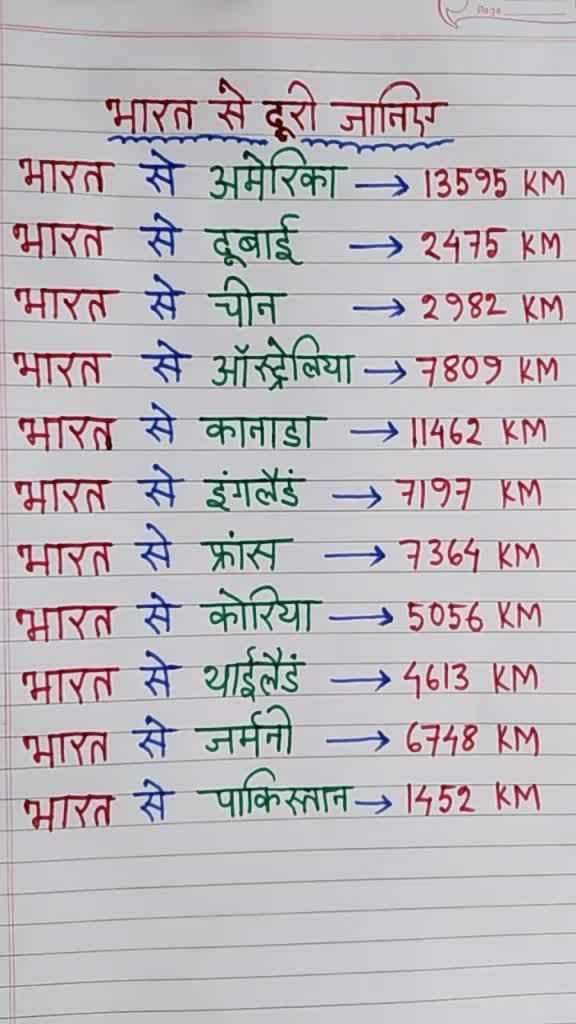 Page
भारत से दूरी जानिए
भारत से अमेरिका → 13595 KM
भारत से दूबाई → 2475 KM
भारत से चीन → 2982 KM
भारत से ऑस्ट्रेलिया → 7809 KM
भारत से कानाडा → 11462 KM
भारत से इंगलैडं → 7197 KM
भारत से फ्रांस → 7364 KM
भारत से कोरिया → 5056 KM
भारत से थाईलैडं → 4613 KM
भारत से जर्मनी → 6748 KM
भारत से पाकिस्तान → 1452 KM